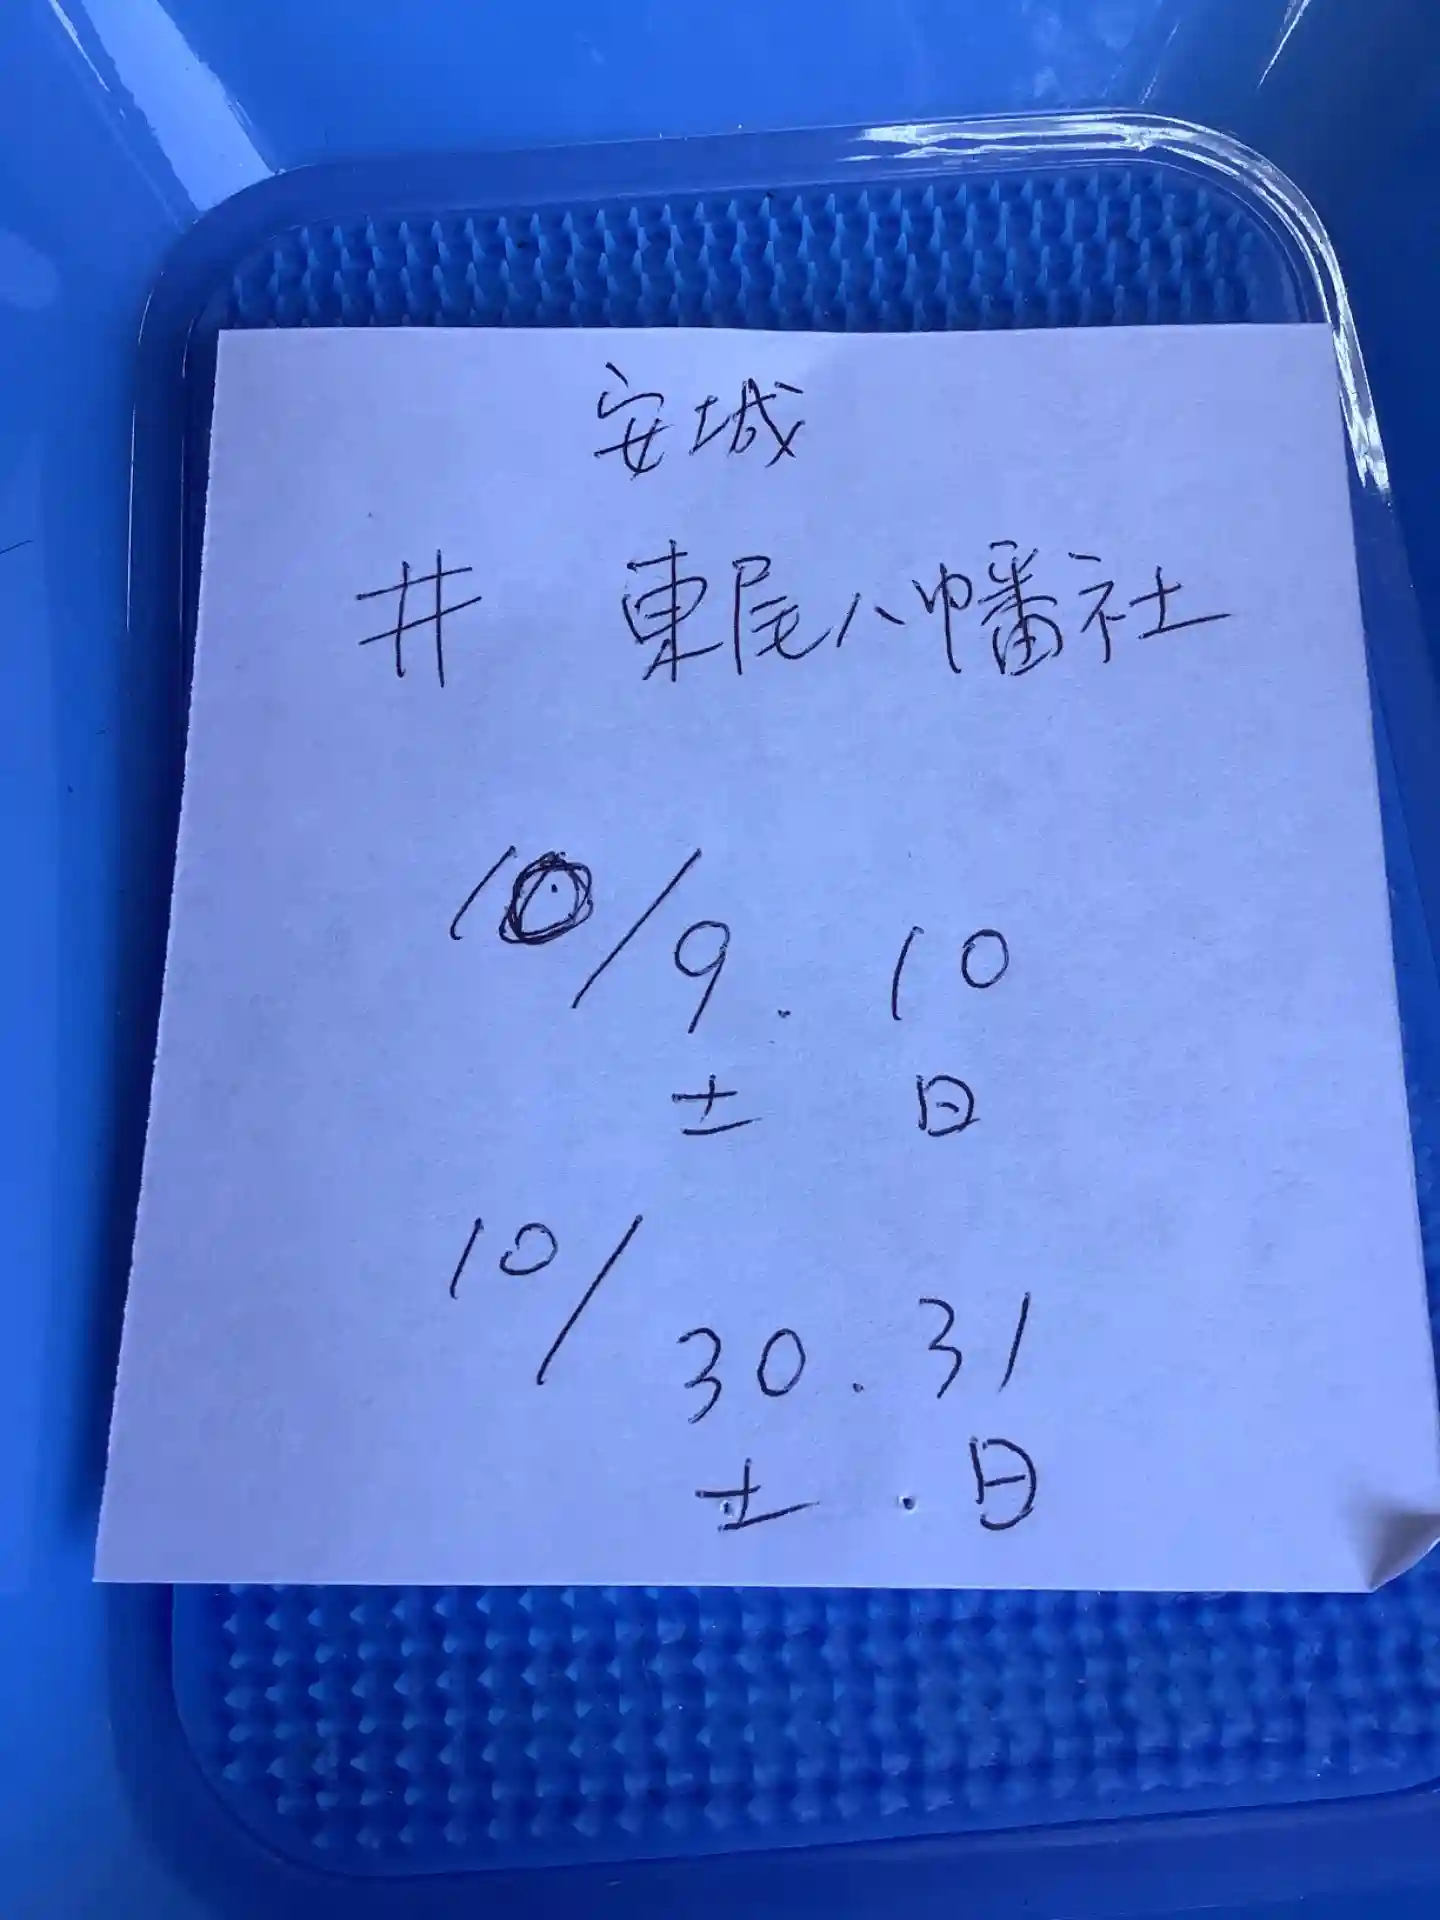 安城
井 東尾八幡社
10/9. 10
土 日
10/30. 31
土. 日